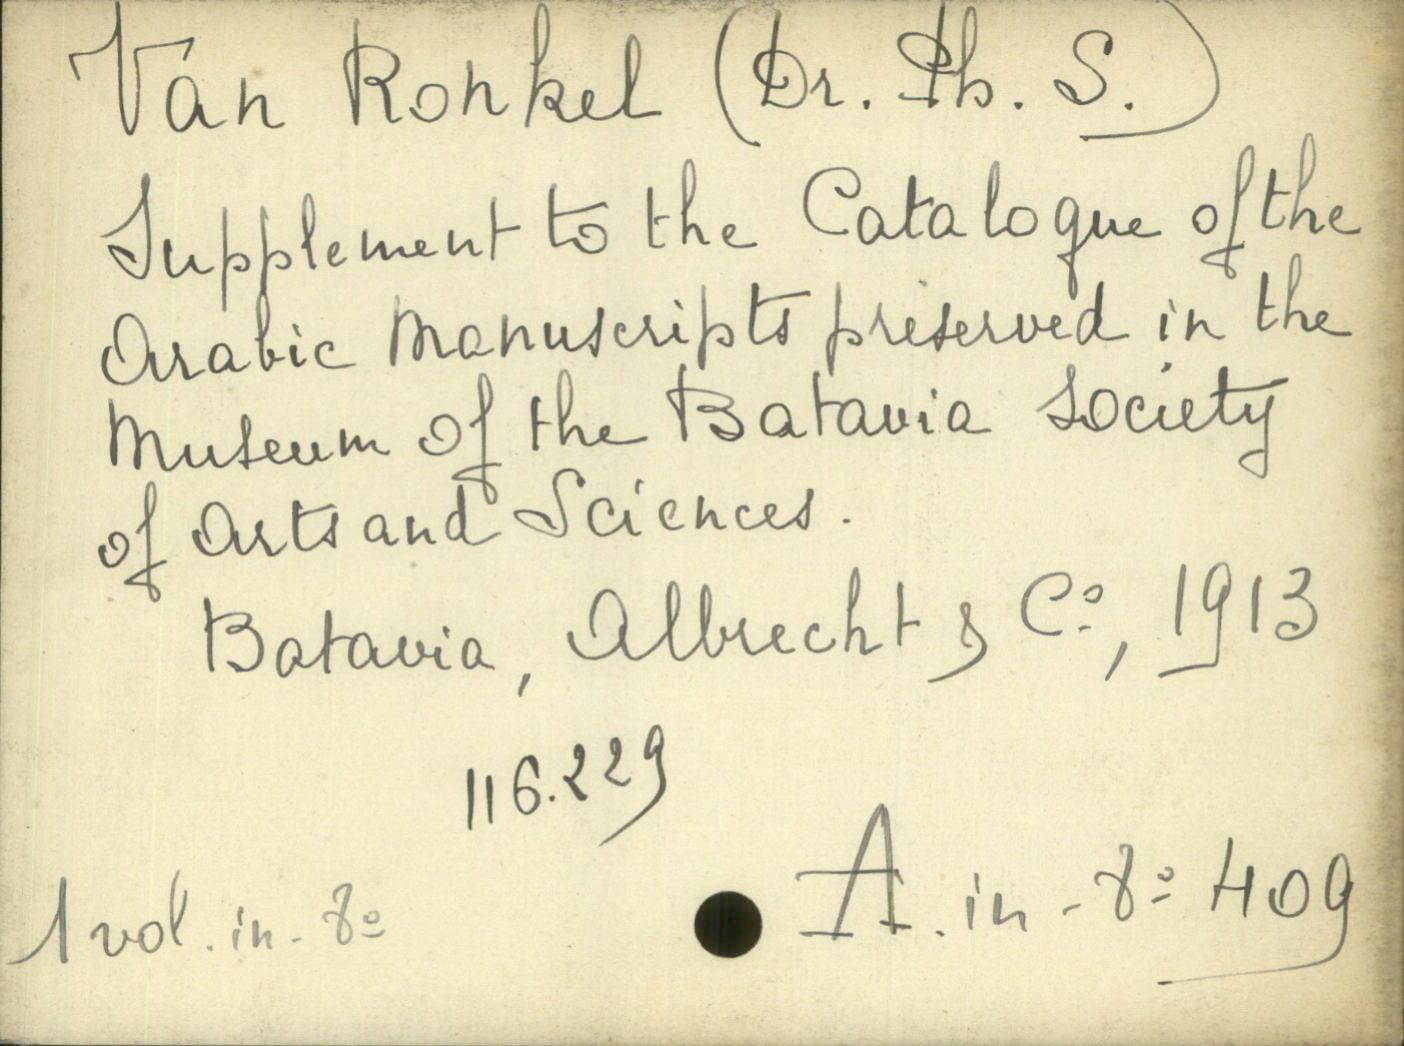 Van Ronkel (Dr. Ph. S.)
Supplement to the Catalogue of the
Arabic Manuscripts preserved in the
Museum of the Batavia Society
of Arts and Sciences.
Batavia, Albrecht & Cº, 1913
116.229
1 vol. in-8º
A. in-8º 409